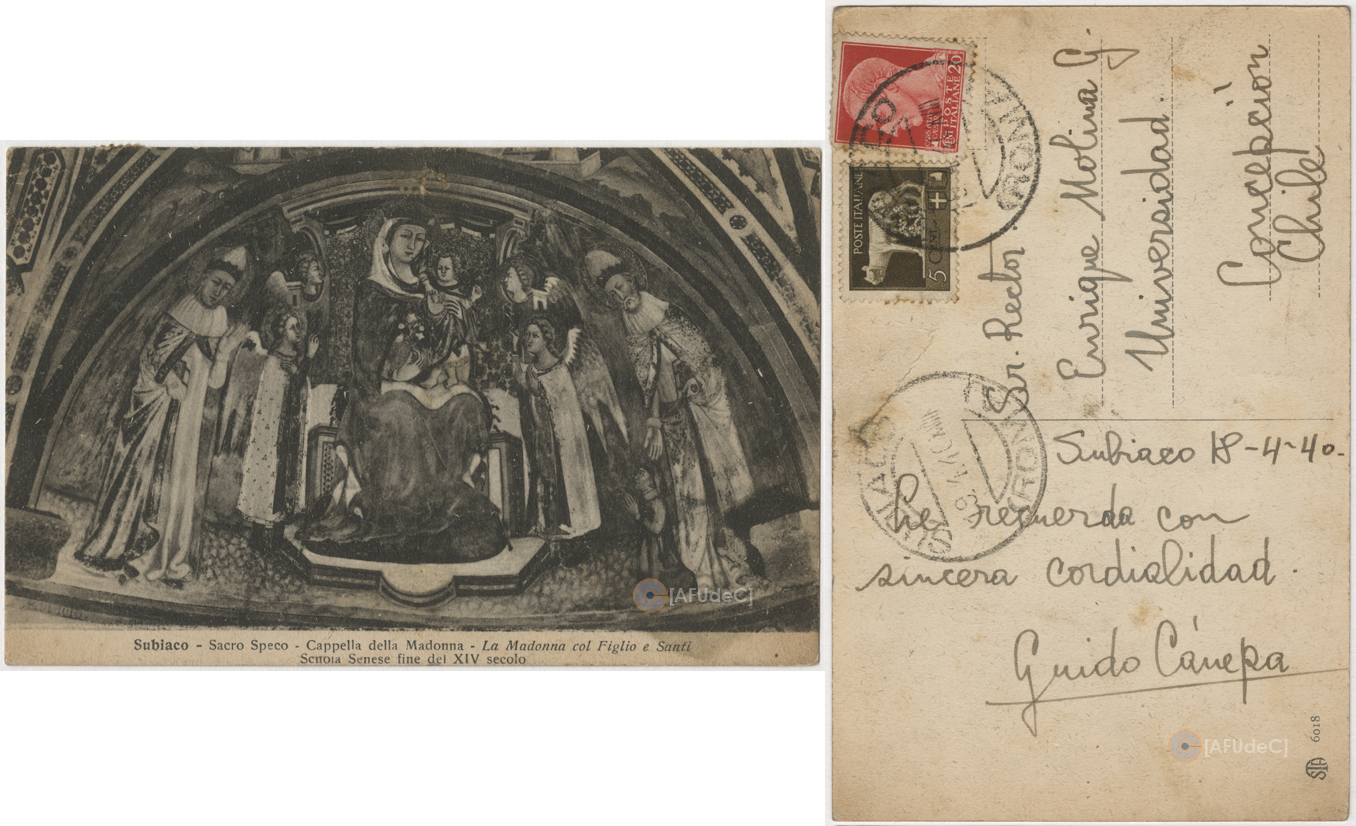 [AFUdeC]
Subiaco - Sacro Speco - Cappella della Madonna - La Madonna col Figlio e Santi
Scuola Senese fine del XIV secolo
POSTE ITALIANE
20
POSTE ITALIANE
5
Sr. Rector
Enrique Molina G.
Universidad.
Concepción
Chile
Subiaco 18-4-40.
Le recuerda con
sincera cordialidad.
Guido Cánepa
[AFUdeC]
6018